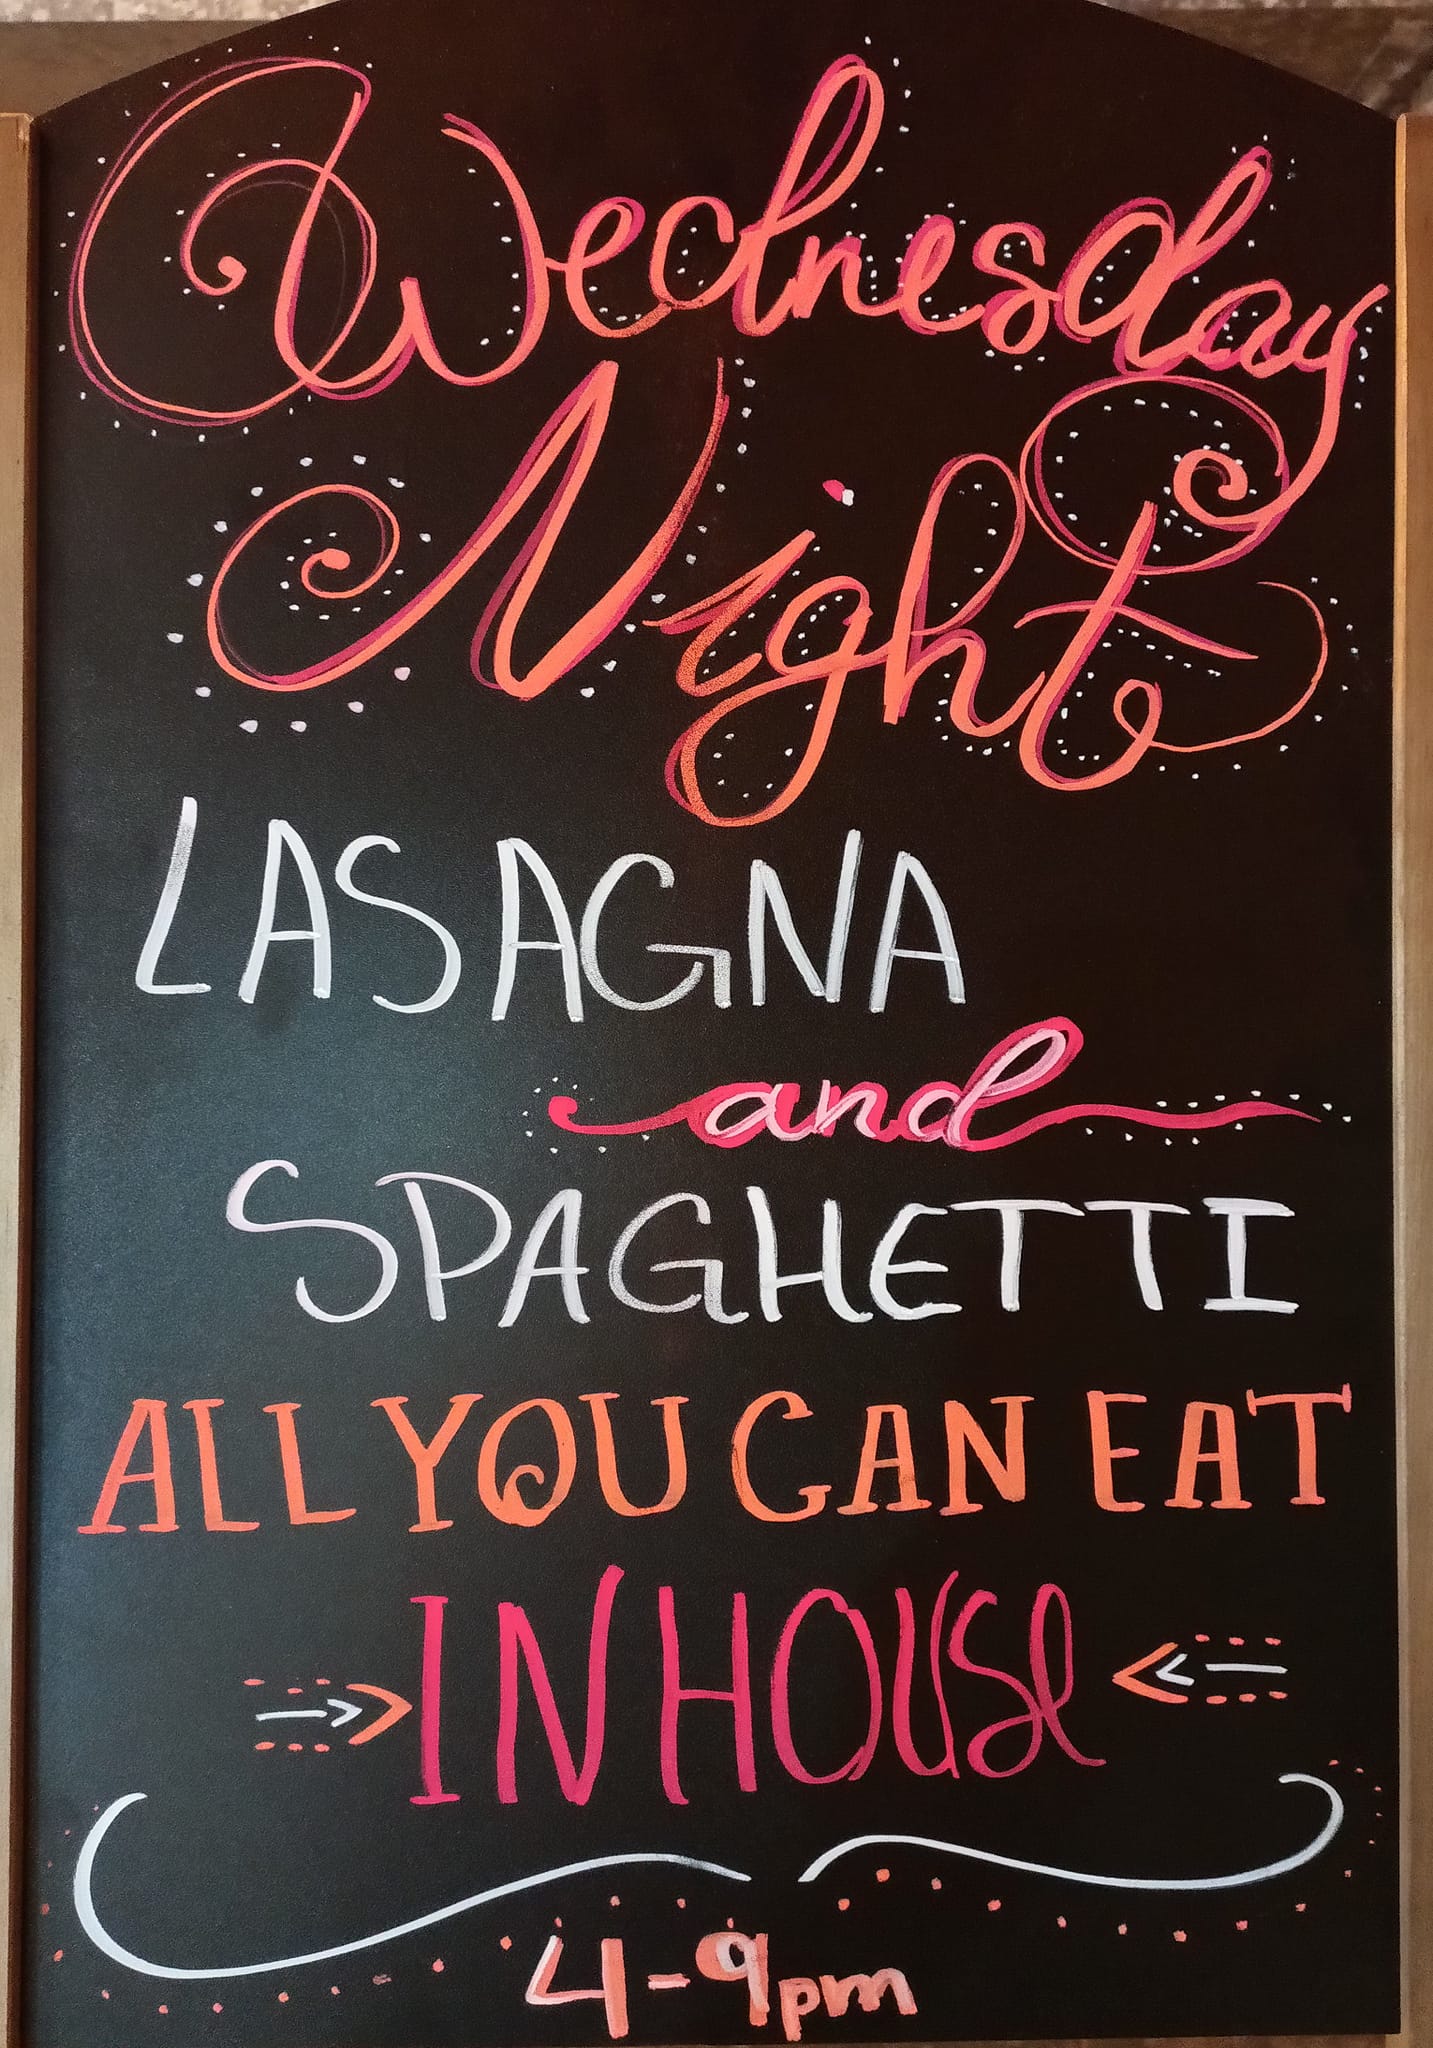 Wednesday
Night
LASAGNA
and
SPAGHETTI
ALL YOU CAN EAT
IN HOUSE
4-9pm